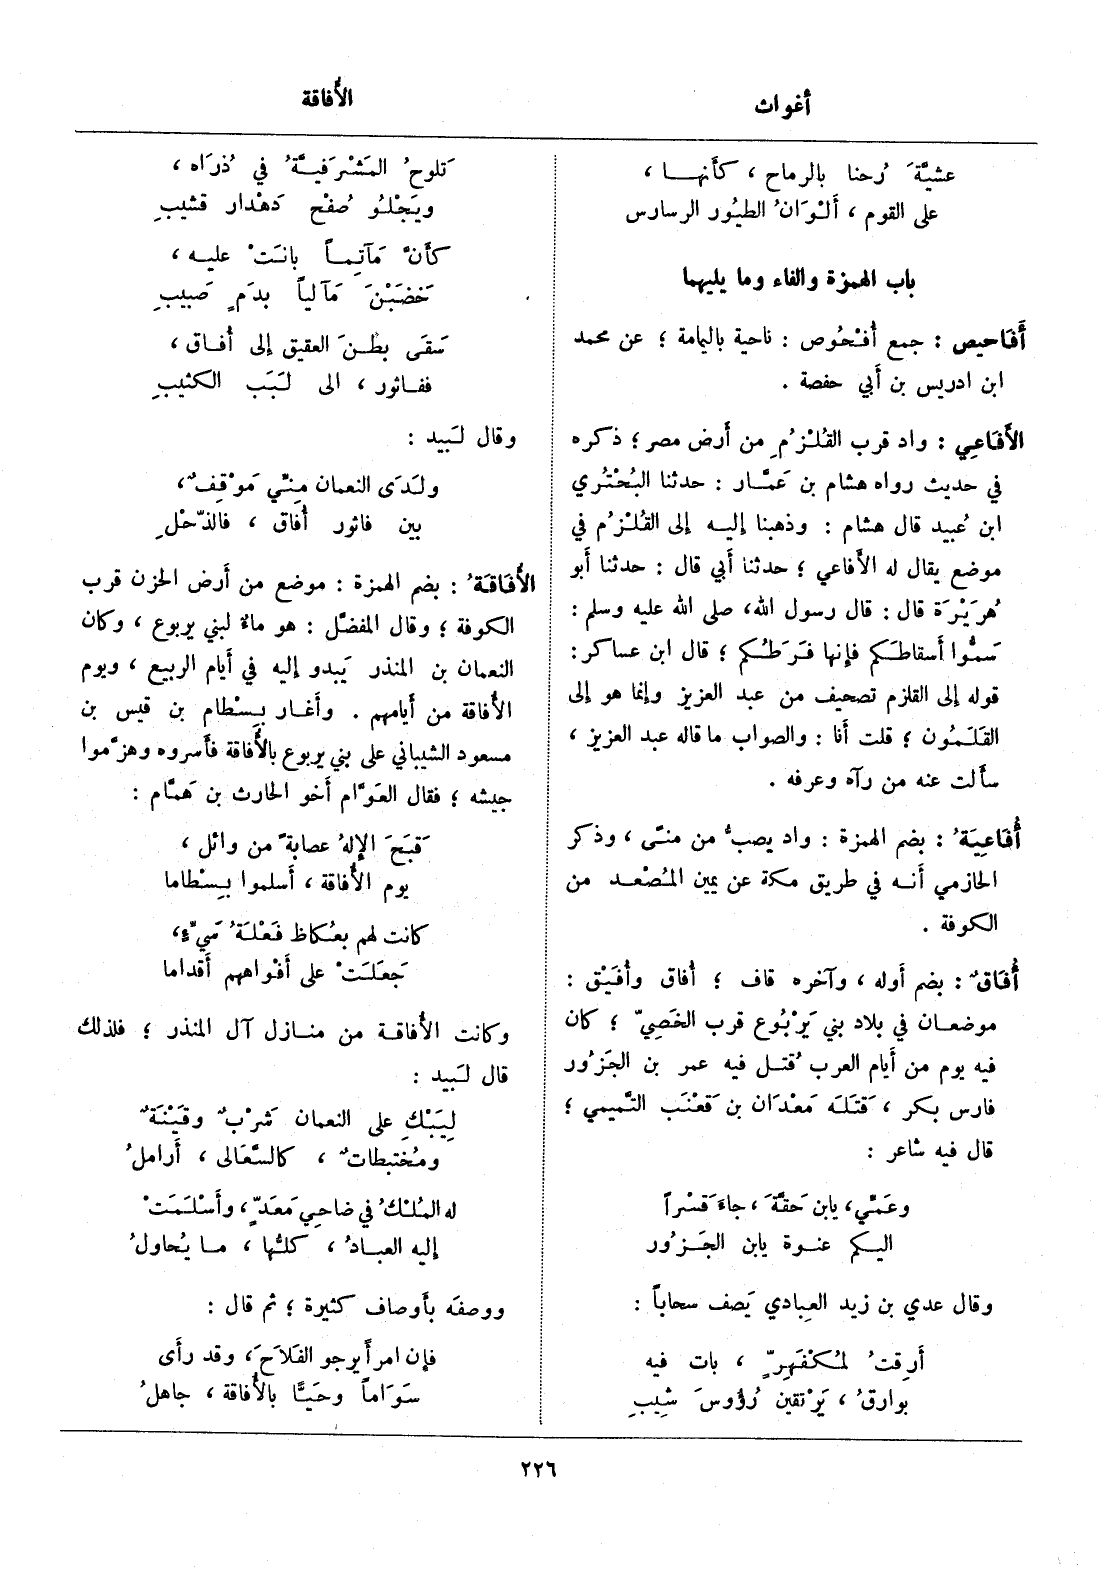 أغواث
الأفاقة
عشيَّةَ رُحنا بالرماح ، كأنهـا ،
على القوم ، ألْوَانُ الطيُور الرسارس
باب الهمزة والفاء وما يليهما
أَفَاحيص : جمع أُفْحُوص : ناحية باليمامة ؛ عن محمد
ابن ادريس بن أَبي حفصة .
الأَفَاعِي : واد قرب القُلْزُمِ من أَرض مصر ؛ ذكره
في حديث رواه هشام بن عَمَّار : حدثنا البُحْتُري
ابن عُبيد قال هشام : وذهبنا إليه إلى القُلْزُم في
موضع يقال له الأفاعي ؛ حدثنا أبي قال : حدثنا أبو
هُرَيْرَة قال : قال رسول الله، صلى الله عليه وسلم :
سَمُّوا أسقاطَكم فإنها فَرَطُكم ؛ قال ابن عساكر :
قوله إلى القلزم تصحيف من عبد العزيز وإنما هو إلى
القَلَمُون ؛ قلت أنا : والصواب ما قاله عبد العزيز ،
سألت عنه من رآه وعرفه .
أُفَاعِيَةُ : بضم الهمزة : واد يصبُّ من منًى ، وذكر
الحازمي أنه في طريق مكة عن يمين المُصْعد من
الكوفة .
أُفَاقٌ : بضم أوله ، وآخره قاف ؛ أُفاق وأُفَيْق :
موضعان في بلاد بني يَرْبُوع قرب الخَصِيّ ؛ كان
فيه يوم من أيام العرب قُتل فيه عمر بن الجَزُور
فارس بكر ، قَتَلَه مَعْدَان بن قَعْنَب التَّميمي ؛
قال فيه شاعر :
وعَمِّي، يابن حَقَّةَ ، جاءَ قَسْراً
اليكم عنوة يابن الجَزُور
وقال عدي بن زيد العِبادي يَصف سحاباً :
أَرِقتُ لمُكْفَهِرٍّ ، بات فيه
بوارقُ ، يَرْتقين رُؤوسَ شِيبِ
تَلوحُ المَشْرَفيَّةُ في ذُرَاه ،
ويَجْلُو صُفْح دَهْدار قشيبِ
كأنَّ مَآتِماً بانَتْ عليه ،
خَضَبْنَ مَآلياً بدَمٍ صَبيبِ
سَقَى بطْنَ العقيق إلى أُفاق ،
ففاثور ، الى لَبَب الكثيبِ
وقال لَبيد :
ولَدَى النعمان مِنّي مَوْقِفٌ،
بين فاثور أُفاق ، فالدَّحْلِ
الأُفَاقَةُ : بضم الهمزة : موضع من أَرض الحزن قرب
الكوفة ؛ وقال المفضَّل : هو ماءٌ لبني يربوع ، وكان
النعمان بن المنذر يَبدو إليه في أَيام الربيع ، ويوم
الأُفاقة من أيامهم . وأغار بِسْطام بن قيس بن
مسعود الشيباني على بني يربوع بالأُفاقة فأسروه وهزَّموا
جيشه ؛ فقال العَوَّام أخو الحارث بن هَمَّام :
قَبَحَ الإلهُ عصابةً من وائل ،
يوم الأُفاقة ، أسلموا بِسْطاما
كانت لهم بعُكاظ فَعْلَةُ سَيِّءٍ،
جَعَلَتْ على أَفْواههم أَقداما
وكانت الأُفاقة من منازل آل المنذر ؛ فلذلك
قال لَبيد :
لِيَبْكِ على النعمان شَرْبٌ وقَيْنَةٌ
ومُختبطاتٌ ، كالسَّعَالى ، أَراملُ
له المُلْكُ في ضاحِي مَعَدٍّ، وأَسْلَمَتْ
إليه العبادُ ، كلُّها ، ما يُحاولُ
ووصفَه بأوصاف كثيرة ؛ ثم قال :
فإن امرأً يرجو الفَلاَحَ، وقد رأَى
سَوَاماً وحَيًّا بالأُفاقة ، جاهلُ
٢٢٦